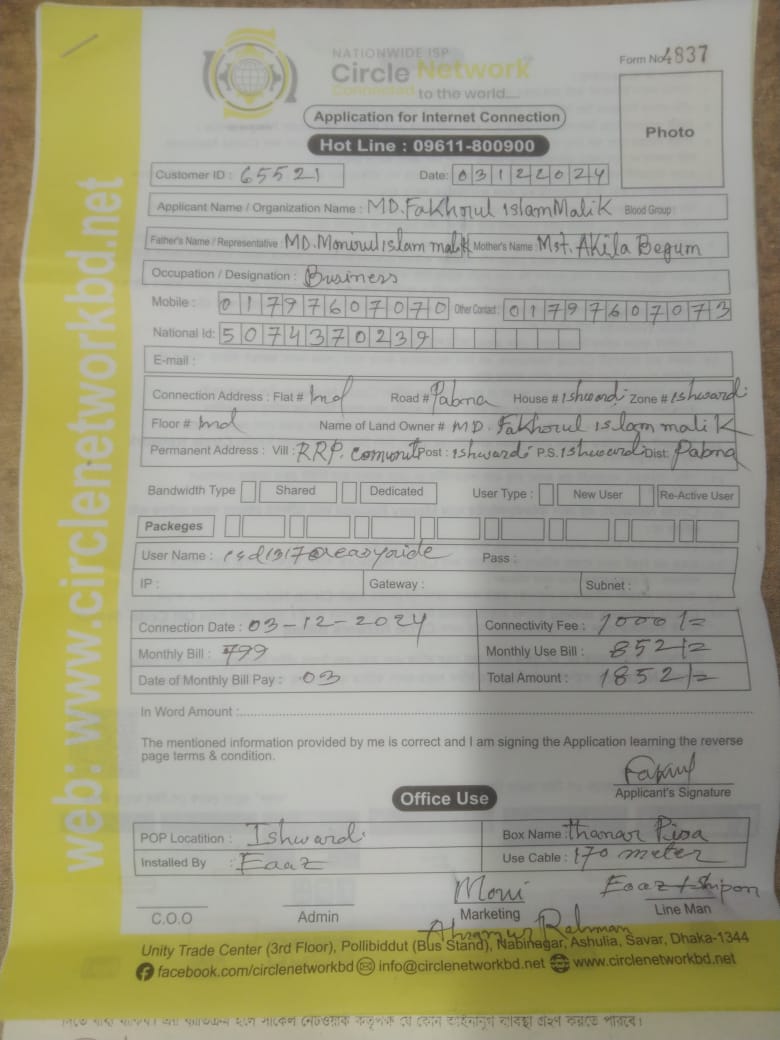 NATIONWIDE ISP
Circle Network
Connected to the world....
Form No 4837
Application for Internet Connection
Hot Line : 09611-800900
Photo
Customer ID : 65521 Date: 03122024
Applicant Name / Organization Name : MD. Fakhorul islam Malik Blood Group :
Father's Name / Representative MD. Monirul islam malik Mother's Name Mst. Akila Begum
Occupation / Designation : Business
Mobile : 01797607070 Other Contact : 01797607073
National Id: 5074370239
E-mail :
Connection Address : Flat # Ind Road # Pabna House # Ishwardi Zone # Ishwardi
Floor # Ind Name of Land Owner # MD. Fakhorul islam malik
Permanent Address : Vill : RRP. Comunit Post : Ishwardi P.S. Ishwardi Dist: Pabna
Bandwidth Type Shared Dedicated User Type : New User Re-Active User
Packeges
User Name : Pass :
IP : Gateway : Subnet :
Connection Date : 03-12-2024 Connectivity Fee : 1000/=
Monthly Bill : 799 Monthly Use Bill : 852/=
Date of Monthly Bill Pay : 03 Total Amount : 1852/=
In Word Amount :
The mentioned information provided by me is correct and I am signing the Application learning the reverse
page terms & condition.
Applicant's Signature
Office Use
POP Locatition : Ishwardi Box Name : thanar Pira
Installed By : Eaaz Use Cable : 170 meter
Moni Eaaz + Shipon
C.O.O Admin Marketing Line Man
Rahman
Unity Trade Center (3rd Floor), Pollibiddut (Bus Stand), Nabinagar, Ashulia, Savar, Dhaka-1344
facebook.com/circlenetworkbd info@circlenetworkbd.net www.circlenetworkbd.net
web: www.circlenetworkbd.net
কর্তৃপক্ষ যে কোন আইনানুগ ব্যবস্থা গ্রহণ করতে পারবে।